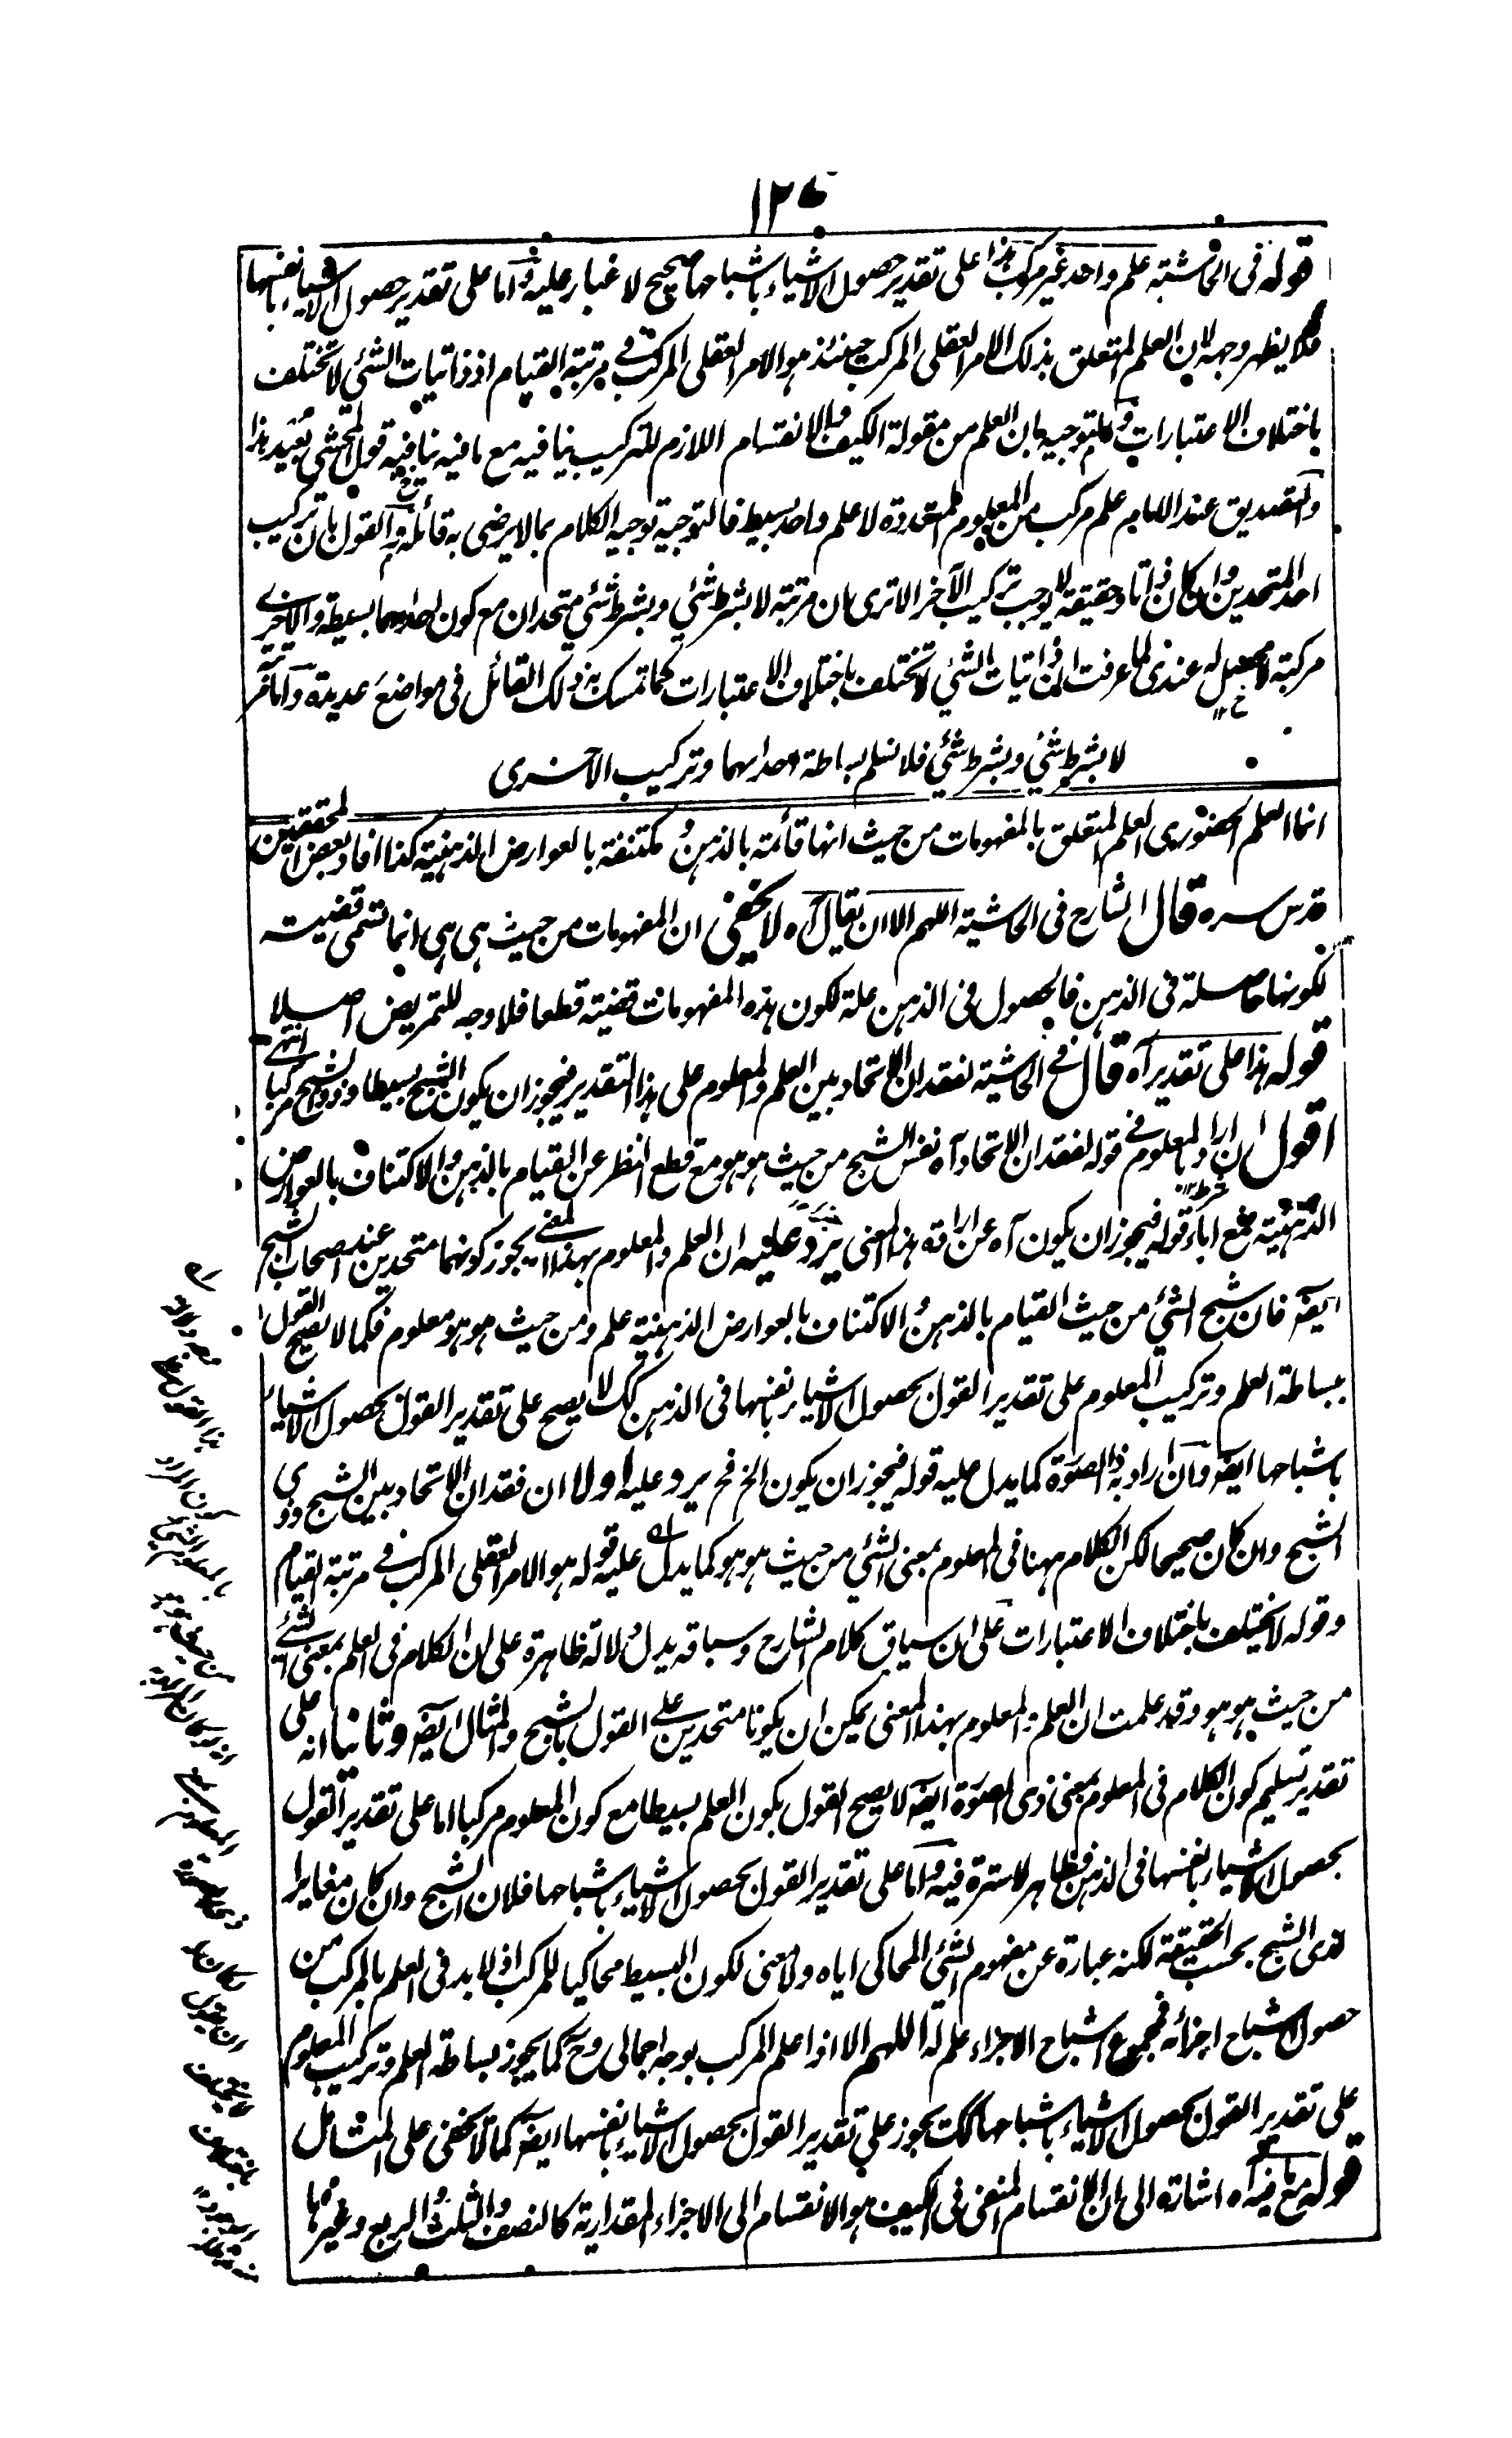 قوله فى الحاشية علم واحد غير مركب هذا على تقدير حصول الاشياء باشباحها صحيح لا غبار عليه واما على تقدير حصول الاشياء بانفسها
فلا يظهر وجهه لان العلم المتعلق بذلك الامر العقلى المركب حينئذ هو الامر العقلى المركب فى مرتبة القيام اذ ذاتيات الشئ لا تختلف
باختلاف الاعتبارات والتوجيه بان العلم من مقولة الكيف والانقسام اللازم للتركيب ينافيه مع ما فيه ينافيه قول المحشى بعيد هذا
والتصديق عند الامام علم مركب من العلوم المتعددة لا علم واحد بسيط فالتوجيه توجيه الكلام بما لا يرضى به قائله والقول بان تركيب
احد المتحدين وان كان ذاتا وحقيقة لا يوجب تركيب الآخر الا ترى ان مرتبة لا بشرط شئ وبشرط شئ متحدان مع كون احداهما بسيطة والاخرى
مركبة لا محصل له عندى لما عرفت ان ذاتيات الشئ لا تختلف باختلاف الاعتبارات كما تمسك به ذلك القائل فى مواضع عديدة واما مرتبة
لا بشرط شئ وبشرط شئ فلا نسلم بساطة احداهما وتركيب الاخرى
انما العلم الحضورى العلم المتعلق بالمفهومات من حيث انها قائمة بالذهن ومكتنفة بالعوارض الذهنية كذا افاد بعض المحققين
قدس سره قال الشارح فى الحاشية اللهم الا ان يقال آه لا يخفى ان المفهومات من حيث هى هى انما تسمى قضية
لكونها حاصلة فى الذهن فالحصول فى الذهن علة لكون هذه المفهومات قضية قطعا فلا وجه للتمريض اصلا
قوله هذا على تقدير آه قال فى الحاشية لفقدان الاتحاد بين العلم والمعلوم على هذا التقدير فيجوز ان يكون الشبح بسيطا وذو الشبح مركبا انتهى
اقول ان اراد بالمعلوم فى قوله لفقدان الاتحاد آه نفس الشبح من حيث هو هو مع قطع النظر عن القيام بالذهن والاكتناف بالعوارض
الذهنية فمع اباء قوله فيجوز ان يكون آه عن ارادة هذا المعنى يرد عليه ان العلم والمعلوم بهذا المعنى يجوز كونهما متحدين عند اصحاب الشبح
ايضا فان شبح الشئ من حيث القيام بالذهن والاكتناف بالعوارض الذهنية علم ومن حيث هو هو معلوم فكما لا يصح القول
ببساطة العلم وتركيب المعلوم على تقدير القول بحصول الاشياء بانفسها فى الذهن كك لا يصح على تقدير القول بحصول الاشياء
باشباحها ايضا وان اراد به ذا الصورة كما يدل عليه قوله فيجوز ان يكون الخ فح يرد عليه اولا ان فقدان الاتحاد بين الشبح وذى
الشبح وان كان صحيحا لكن الكلام ههنا فى المعلوم بمعنى الشئ من حيث هو هو كما يدل عليه قوله هو الامر العقلى المركب فى مرتبة القيام
وقوله لا يختلف باختلاف الاعتبارات على ان سياق كلام الشارح وسباقه يدل دلالة ظاهرة على ان الكلام فى العلم بمعنى الشئ
من حيث هو هو وقد علمت ان العلم والمعلوم بهذا المعنى يمكن ان يكونا متحدين على القول بالشبح والمثال ايضا وثانيا انه على
تقدير تسليم كون الكلام فى المعلوم بمعنى ذى الصورة ايضا لا يصح القول بكون العلم بسيطا مع كون المعلوم مركبا اما على تقدير القول
بحصول الاشياء بانفسها فى الذهن فظاهر لا سترة فيه واما على تقدير القول بحصول الاشياء باشباحها فلان الشبح وان كان مغايرا
لذى الشبح بحسب الحقيقة لكنه عبارة عن مفهوم الشئ المحاكى اياه ولا معنى لكون البسيط محاكيا للمركب اذ لا بد فى العلم بالمركب من
حصول اشباح اجزائه فمجموع اشباح الاجزاء علم له اللهم الا اذا علم المركب بوجه اجمالى وح كما يجوز بساطة العلم وتركيب المعلوم
على تقدير القول بحصول الاشياء باشباحها كك يجوز على تقدير القول بحصول الاشياء بانفسها ايضا كما لا يخفى على المتأمل
قوله مع ما فيه آه اشارة الى ان الانقسام المنفى فى الكيف هو الانقسام الى الاجزاء المقدارية كالنصف والثلث والربع وغيرها